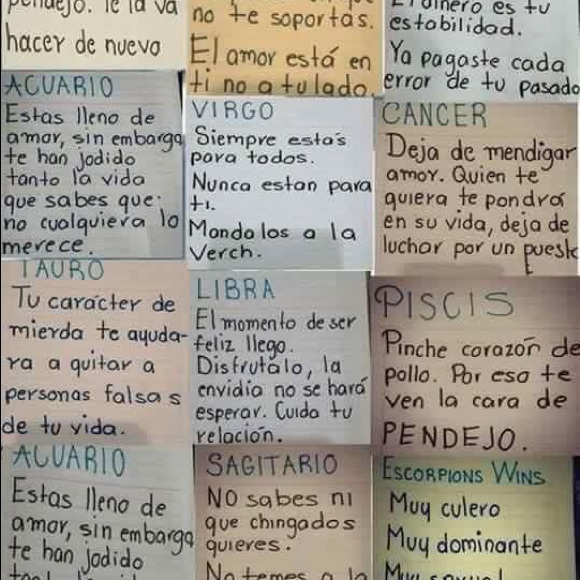 pendejo. Te la va
hacer de nuevo
no te soportas.
El amor está en
ti no a tu lado.
El dinero es tu
estabilidad.
Ya pagaste cada
error de tu pasado
ACUARIO
Estas lleno de
amor, sin embargo
te han jodido
tanto la vida
que sabes que
no cualquiera lo
merece.
VIRGO
Siempre estás
para todos.
Nunca estan para
ti.
Mandalos a la
Verch.
CANCER
Deja de mendigar
amor. Quien te
quiera te pondrá
en su vida, deja de
luchar por un puest
TAURO
Tu carácter de
mierda te ayuda-
ra a quitar a
personas falsas
de tu vida.
LIBRA
El momento de ser
feliz llego.
Disfrutalo, la
envidia no se hará
esperar. Cuida tu
relación.
PISCIS
Pinche corazón de
pollo. Por eso te
ven la cara de
PENDEJO.
ACUARIO
Estas lleno de
amor, sin embargo
te han jodido
SAGITARIO
NO sabes ni
que chingados
quieres.
No temes a la
ESCORPIONS WINS
Muy culero
Muy dominante
Muy